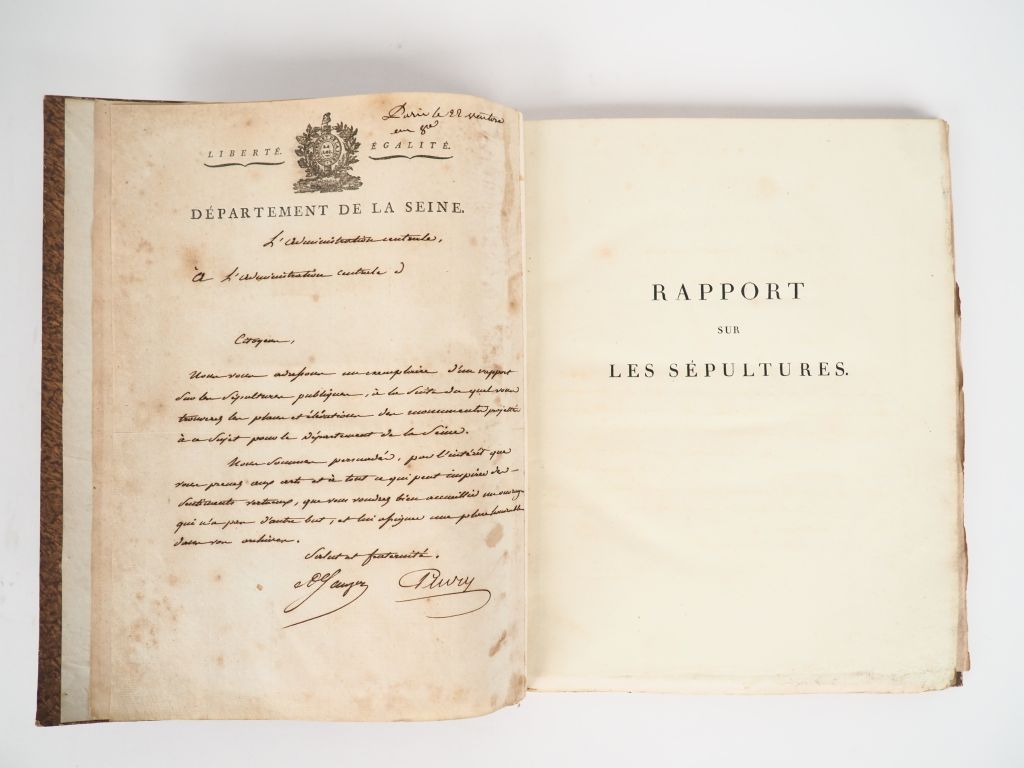 Paris le 22 ventose
an 8e
LIBERTÉ. ÉGALITÉ.
DÉPARTEMENT DE LA SEINE.
L'administration centrale,
à L'administration centrale d
Citoyens,
Nous vous adressons un exemplaire d'un rapport
sur les sépultures publiques, à la suite du quel vous
trouverez les plans et élévations des monuments projettés
à ce sujet pour le département de la Seine.
Nous sommes persuadés, par l'intérêt que
vous prenez aux arts et à tout ce qui peut inspirer des
sentiments vertueux, que vous voudrez bien accueillir un ouvrage
qui n'a pas d'autre but, et lui assigner une place honorable
dans vos archives.
Salut et fraternité.
RAPPORT
SUR
LES SÉPULTURES.